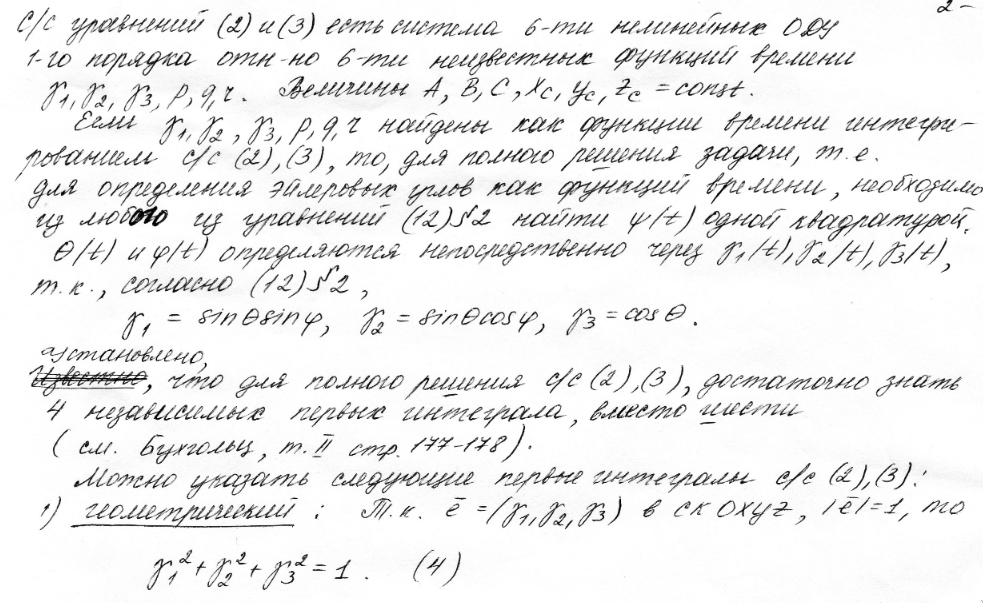 2-
с/с уравнений (2) и (3) есть система 6-ти нелинейных ОДУ
1-го порядка отн-но 6-ти неизвестных функций времени
γ₁, γ₂, γ₃, p, q, r. Величины A, B, C, x_c, y_c, z_c = const.
Если γ₁, γ₂, γ₃, p, q, r найдены как функции времени интегри-
рованием с/с (2), (3), то, для полного решения задачи, т.е.
для определения эйлеровых углов как функций времени, необходимо
из любого из уравнений (12) §2 найти ψ(t) одной квадратурой.
θ(t) и φ(t) определяются непосредственно через γ₁(t), γ₂(t), γ₃(t),
т.к., согласно (12) §2,
γ₁ = sinθ sinφ, γ₂ = sinθ cosφ, γ₃ = cosθ.
Установлено,
Известно, что для полного решения с/с (2), (3), достаточно знать
4 независимых первых интеграла, вместо шести
(см. Бухгольц, т. II стр. 177-178).
Можно указать следующие первые интегралы с/с (2), (3):
1) геометрический: Т.к. ē = (γ₁, γ₂, γ₃) в СК OXYZ, |ē| = 1, то
γ₁² + γ₂² + γ₃² = 1. (4)